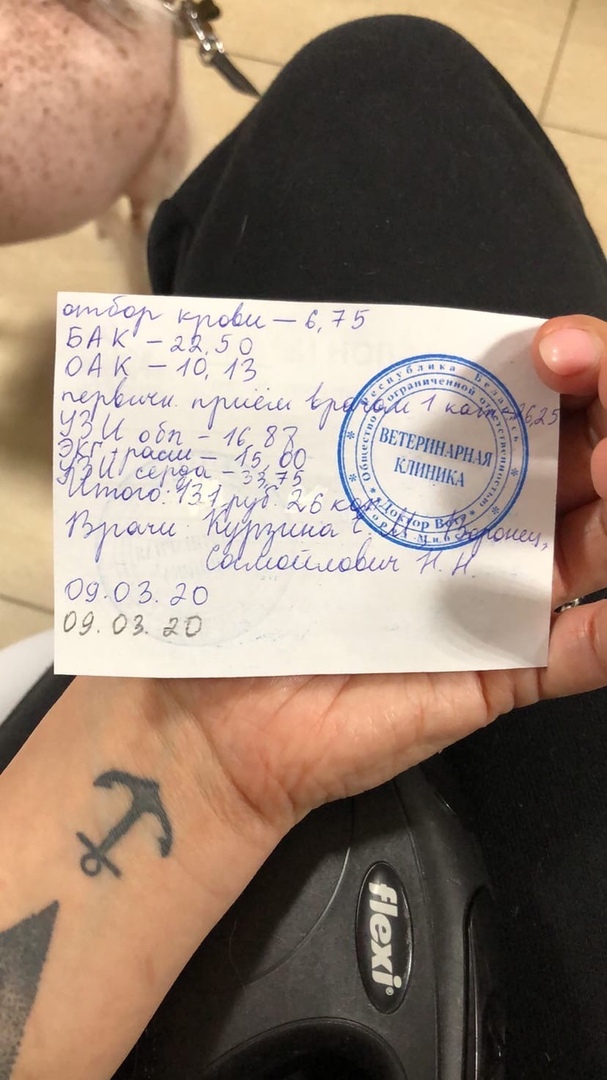 отбор крови – 6,75
БАК – 22,50
ОАК – 10,13
первичн. приём врачом 1 кат – 26,25
УЗИ обп – 16,88
ЭКГ+расш – 15,00
УЗИ сердца – 33,75
Итого: 131 руб. 26 коп
Врачи Курзина Воронец,
Самойлович Н. Н.
09.03.20
09.03.20
Республика Беларусь
Общество с ограниченной ответственностью
ВЕТЕРИНАРНАЯ
КЛИНИКА
Доктор Вет
город Минск
flexi